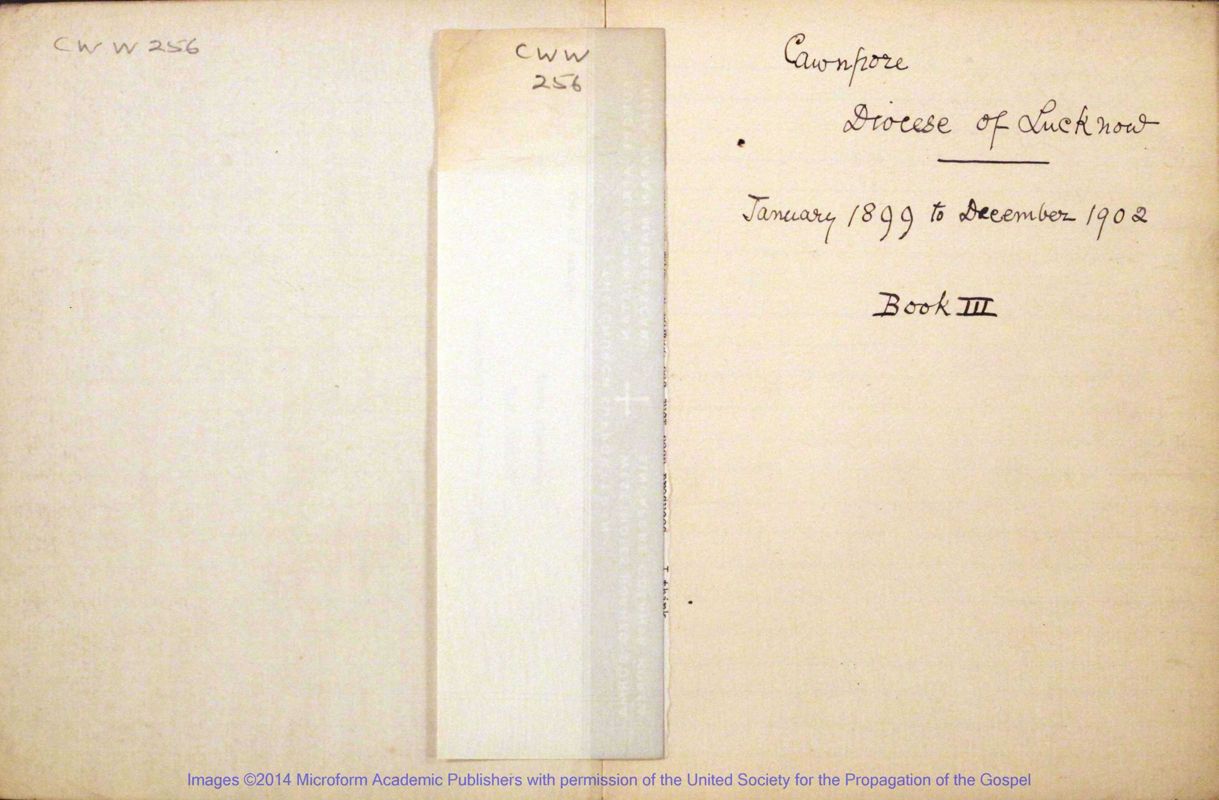 CWW 256
CWW
256
Cawnpore
Diocese of Lucknow
January 1899 to December 1902
Book III
I think
Images ©2014 Microform Academic Publishers with permission of the United Society for the Propagation of the Gospel